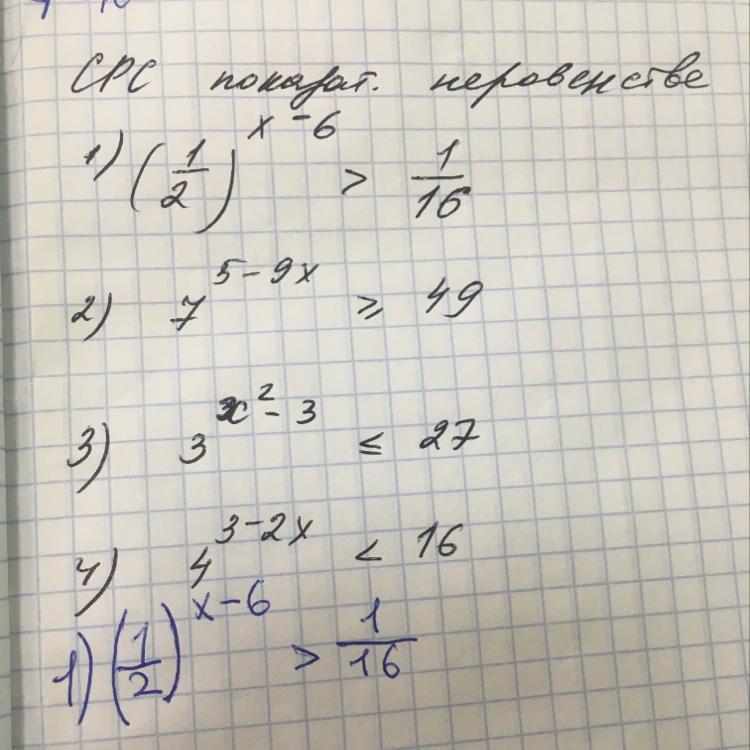 СРС показат. неровенстве
1) (1/2)^(x-6) > 1/16
2) 7^(5-9x) ≥ 49
3) 3^(x²-3) ≤ 27
4) 4^(3-2x) < 16
1) (1/2)^(x-6) > 1/16